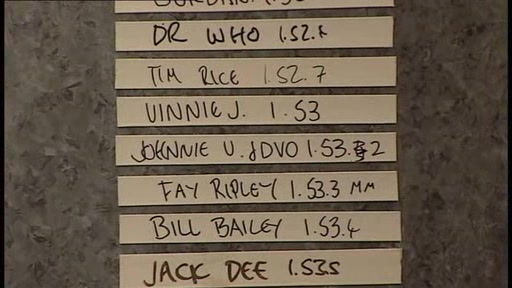 DR WHO 1.52.
TIM RICE 1.52.7
VINNIE J. 1.53
JOHNNIE V. &DVO 1.53. 2
FAY RIPLEY 1.53.3 MM
BILL BAILEY 1.53.4
JACK DEE 1.53.5